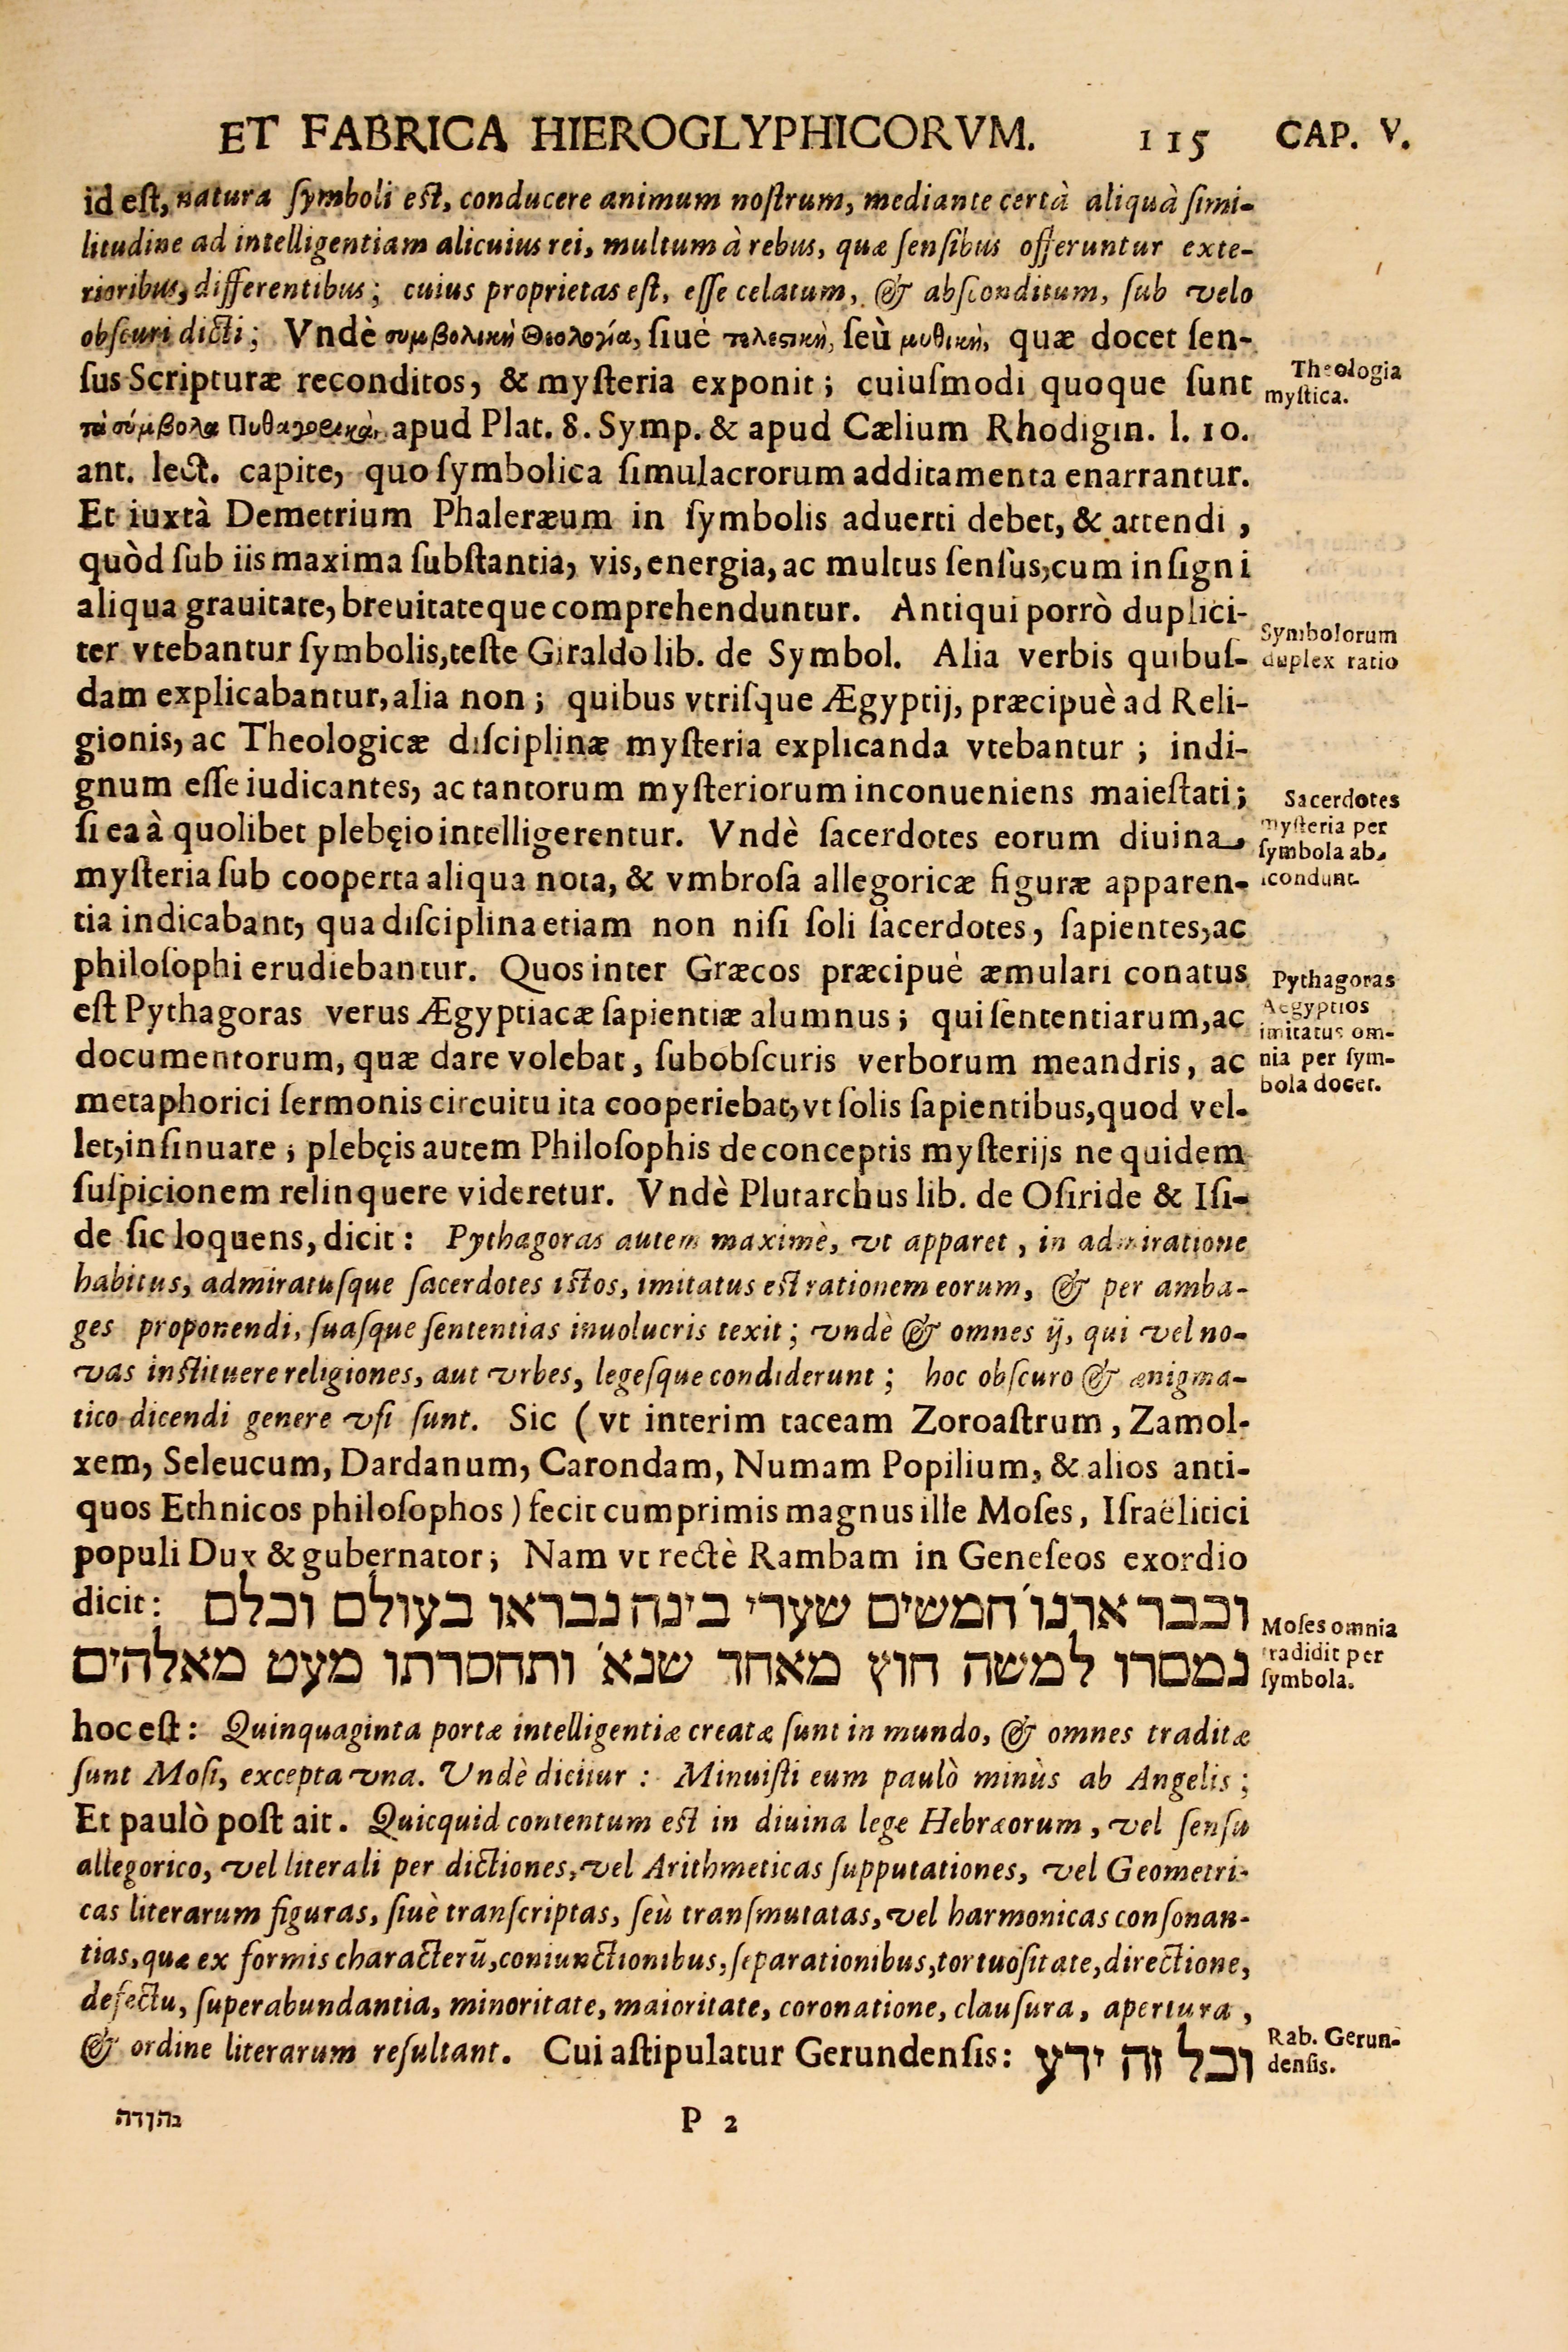 ET FABRICA HIEROGLYPHICORVM. 115 CAP. V.
id eſt, natura ſymboli eſt, conducere animum noſtrum, mediante certà aliquà ſimi-
litudine ad intelligentiam alicuius rei, multum à rebus, quæ ſenſibus offeruntur exte-
rioribus, differentibus; cuius proprietas eſt, eſſe celatum, & abſconditum, ſub velo
obſcuri dicti; Vndè συμβολικὴ Θεολογία, ſiuè τελεστικὴ, ſeù μυθικὴ, quæ docet ſen-
ſus Scripturæ reconditos, & myſteria exponit; cuiuſmodi quoque ſunt
τὰ σύμβολα Πυθαγορικὰ, apud Plat. 8. Symp. & apud Cælium Rhodigin. l. 10.
ant. lect. capite, quo ſymbolica ſimulacrorum additamenta enarrantur.
Et iuxtà Demetrium Phaleræum in ſymbolis aduerti debet, & attendi,
quòd ſub iis maxima ſubſtantia, vis, energia, ac multus ſenſus, cum inſigni
aliqua grauitate, breuitateque comprehenduntur. Antiqui porrò duplici-
ter vtebantur ſymbolis, teſte Giraldo lib. de Symbol. Alia verbis quibuſ-
dam explicabantur, alia non; quibus vtriſque Ægyptij, præcipuè ad Reli-
gionis, ac Theologicæ diſciplinæ myſteria explicanda vtebantur; indi-
gnum eſſe iudicantes, ac tantorum myſteriorum inconueniens maieſtati;
ſi ea à quolibet plebęio intelligerentur. Vndè ſacerdotes eorum diuina
myſteria ſub cooperta aliqua nota, & vmbroſa allegoricæ figuræ apparen-
tia indicabant, qua diſciplina etiam non niſi ſoli ſacerdotes, ſapientes, ac
philoſophi erudiebantur. Quos inter Græcos præcipuè æmulari conatus
eſt Pythagoras verus Ægyptiacæ ſapientiæ alumnus; qui ſententiarum, ac
documentorum, quæ dare volebat, ſubobſcuris verborum meandris, ac
metaphorici ſermonis circuitu ita cooperiebat, vt ſolis ſapientibus, quod vel-
let, inſinuare; plebęis autem Philoſophis de conceptis myſterijs ne quidem
ſuſpicionem relinquere videretur. Vndè Plutarchus lib. de Oſiride & Iſi-
de ſic loquens, dicit: Pythagoras autem maximè, vt apparet, in admiratione
habitus, admiratuſque ſacerdotes iſtos, imitatus eſt rationem eorum, & per amba-
ges proponendi, ſuaſque ſententias inuolucris texit; vndè & omnes ij, qui vel no-
vas inſtituere religiones, aut vrbes, legeſque condiderunt; hoc obſcuro & ænigma-
tico dicendi genere vſi ſunt. Sic (vt interim taceam Zoroaſtrum, Zamol-
xem, Seleucum, Dardanum, Carondam, Numam Popilium, & alios anti-
quos Ethnicos philoſophos) fecit cumprimis magnus ille Moſes, Iſraëlitici
populi Dux & gubernator; Nam vt rectè Rambam in Geneſeos exordio
dicit: וכבר ארנו׳ חמשים שערי בינה נבראו בעולם וכלם
נמסרו למשה חוץ מאחד שנא׳ ותחסרתו מעט מאלהים
hoc eſt: Quinquaginta portæ intelligentiæ creatæ ſunt in mundo, & omnes traditæ
ſunt Moſi, excepta vna. Vndè dicitur: Minuiſti eum paulò minùs ab Angelis;
Et paulò poſt ait. Quicquid contentum eſt in diuina lege Hebræorum, vel ſenſu
allegorico, vel literali per dictiones, vel Arithmeticas ſupputationes, vel Geometri-
cas literarum figuras, ſiuè tranſcriptas, ſeù tranſmutatas, vel harmonicas conſonan-
tias, quæ ex formis characterũ, coniunctionibus, ſeparationibus, tortuoſitate, directione,
defectu, ſuperabundantia, minoritate, maioritate, coronatione, clauſura, apertura,
& ordine literarum reſultant. Cui aſtipulatur Gerundenſis: וכל זה ידע
בהןדה
P 2
Theologia
myſtica.
Symbolorum
duplex ratio
Sacerdotes
myſteria per
ſymbola ab-
ſcondunt.
Pythagoras
Aegyptios
imitatus om-
nia per ſym-
bola docet.
Moſes omnia
tradidit per
ſymbola.
Rab. Gerun-
denſis.